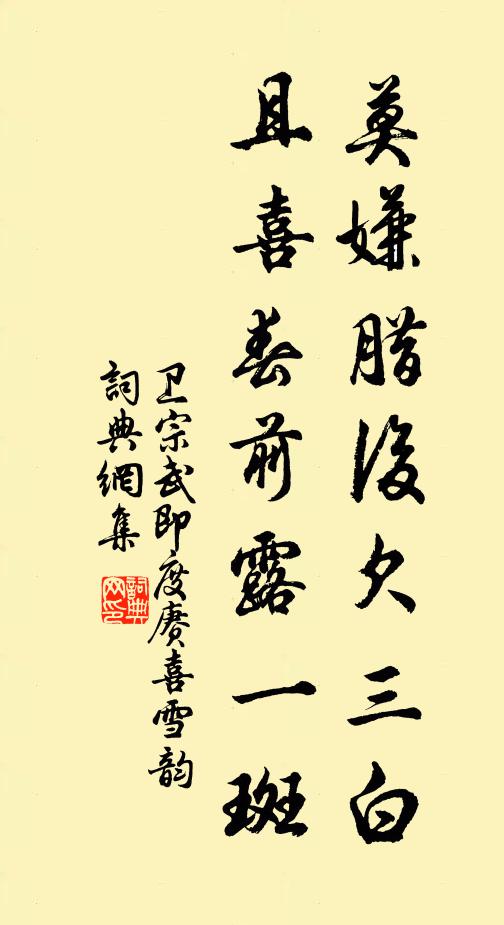 莫嫌腊後欠三白
且喜春前露一斑
卫宗武即度赓喜雪韵
詞典網集
詞典